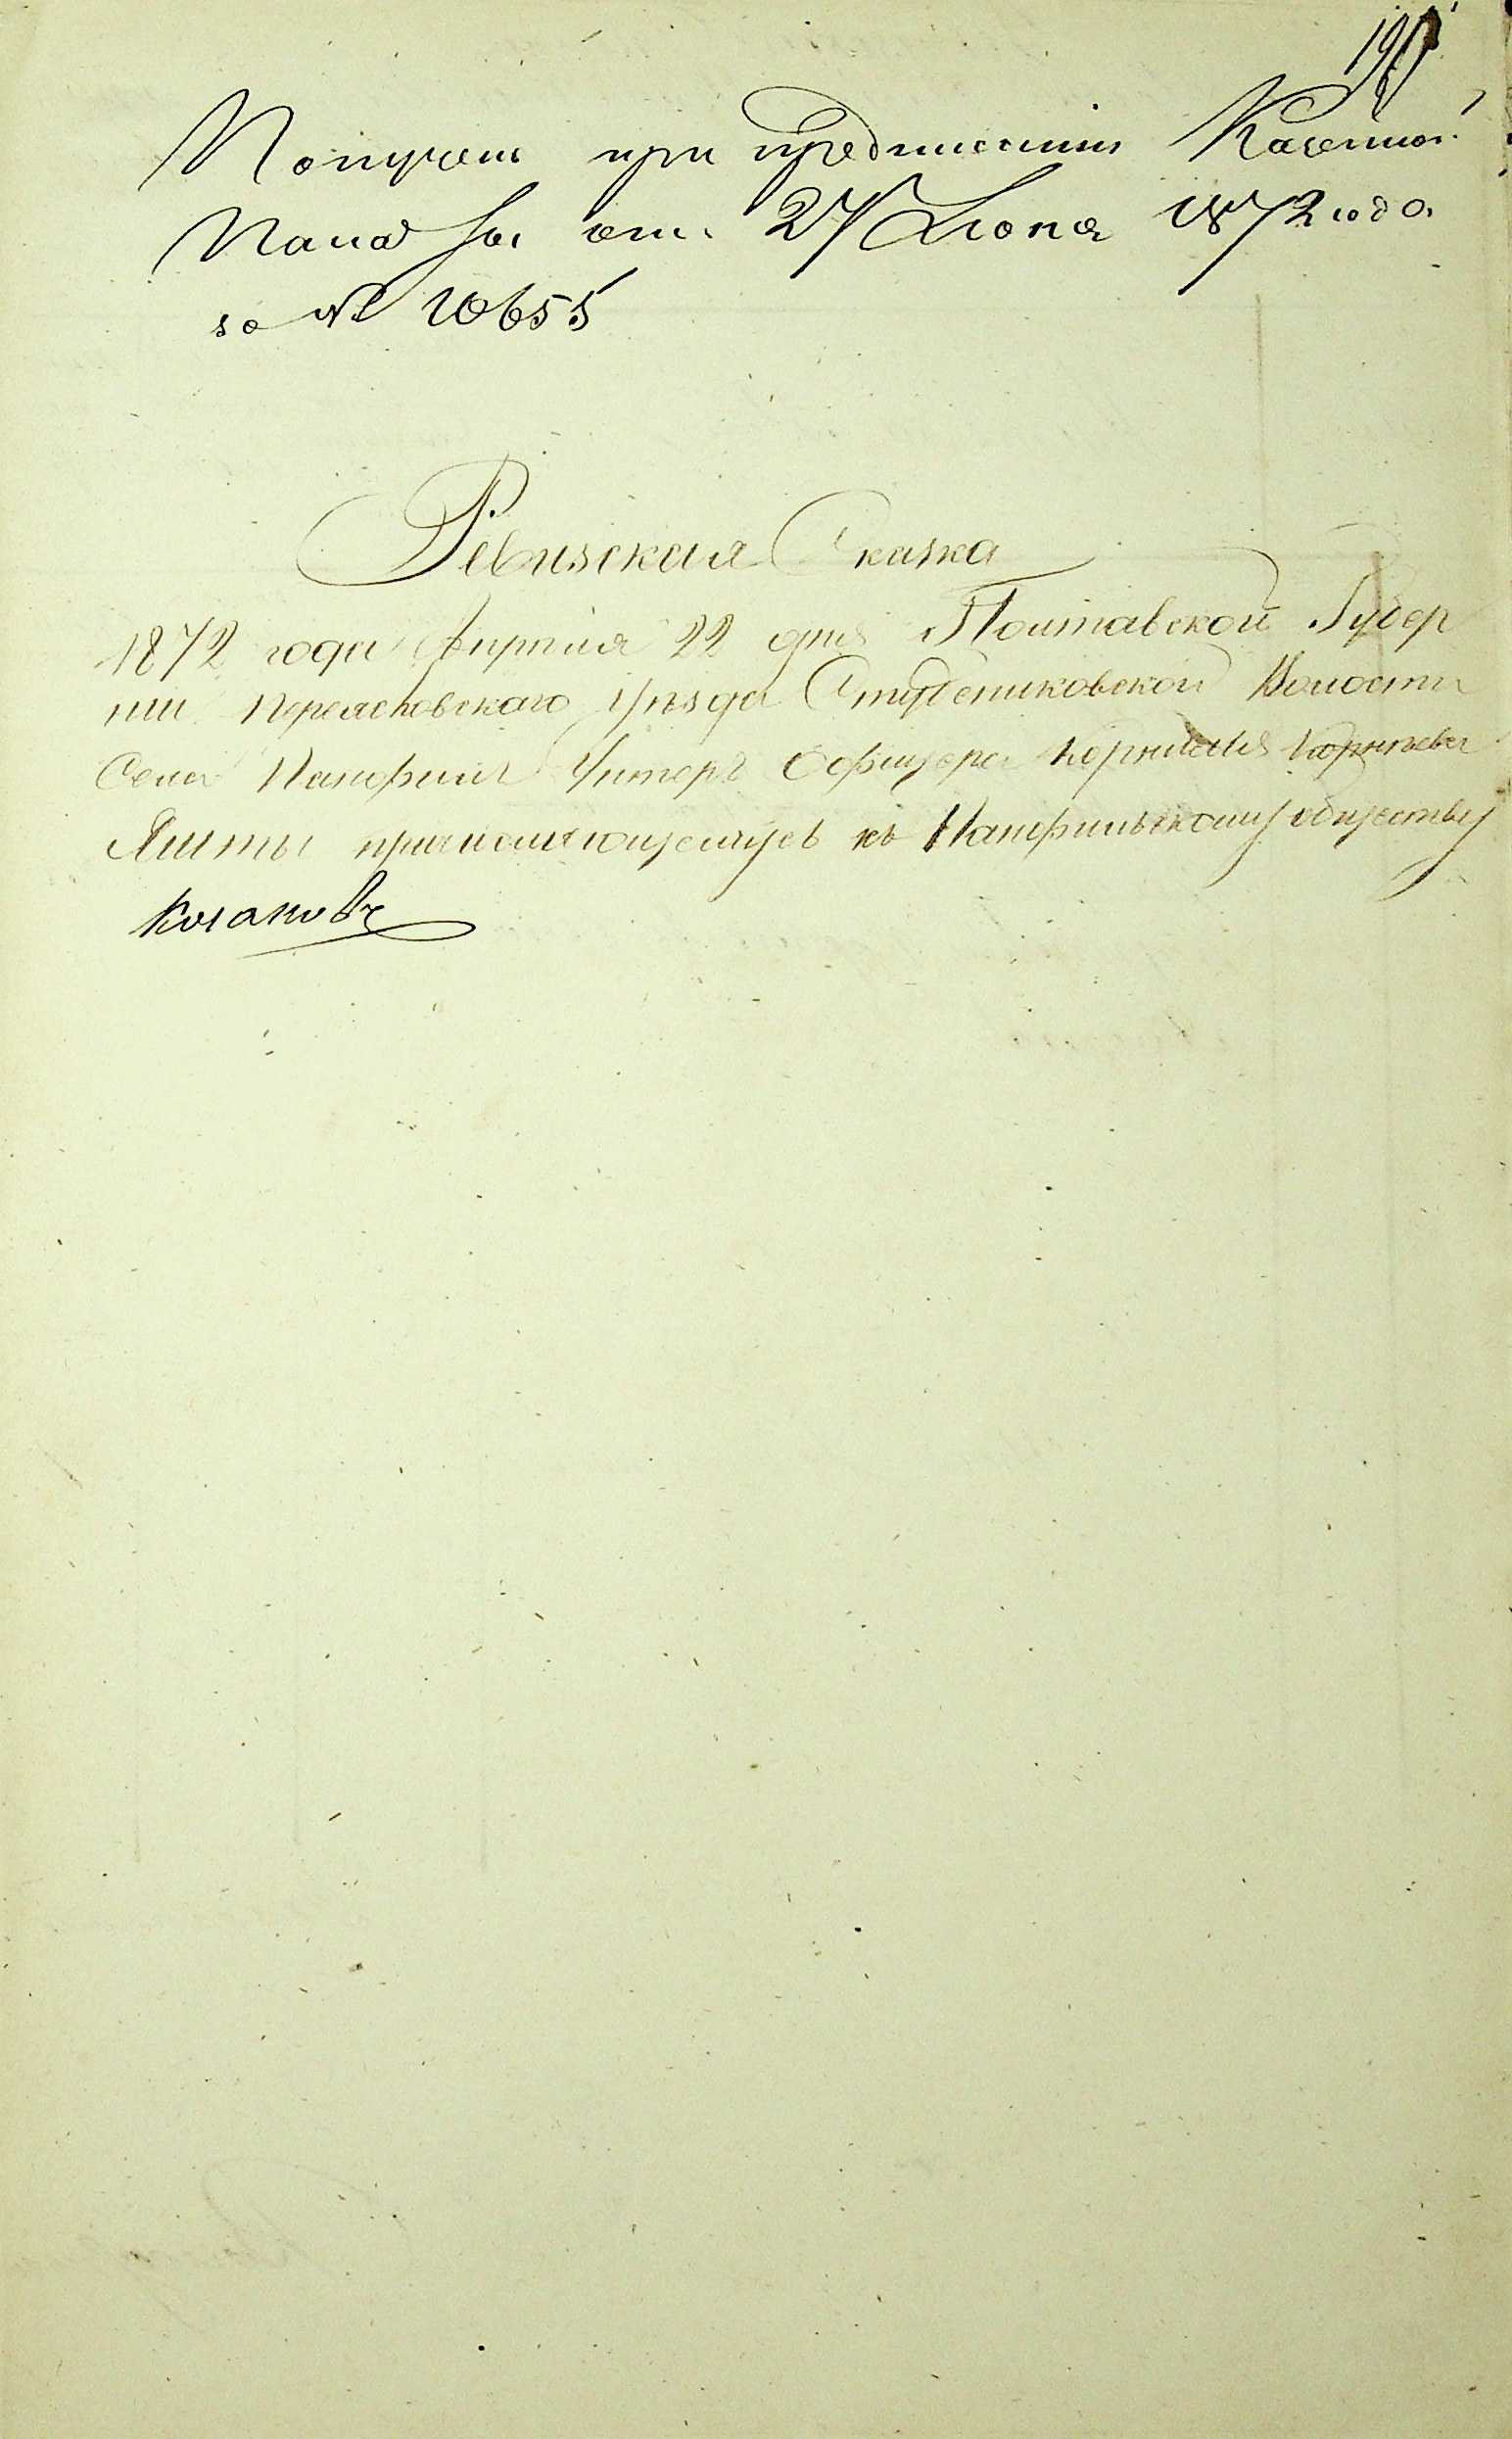 Получена при предписании Казенной
Палаты отъ 27 Июня 1872 года
за № 10655
Ревизская Сказка
1872 года Апрѣля 22 дня Полтавской Губер
нии Переясловского Уѣзда Студениковской Волости
Села Панфилъ Унтеръ Офицера Корнилия Корнѣева
причисляющемуся къ Панфильскому обществу
козаковъ